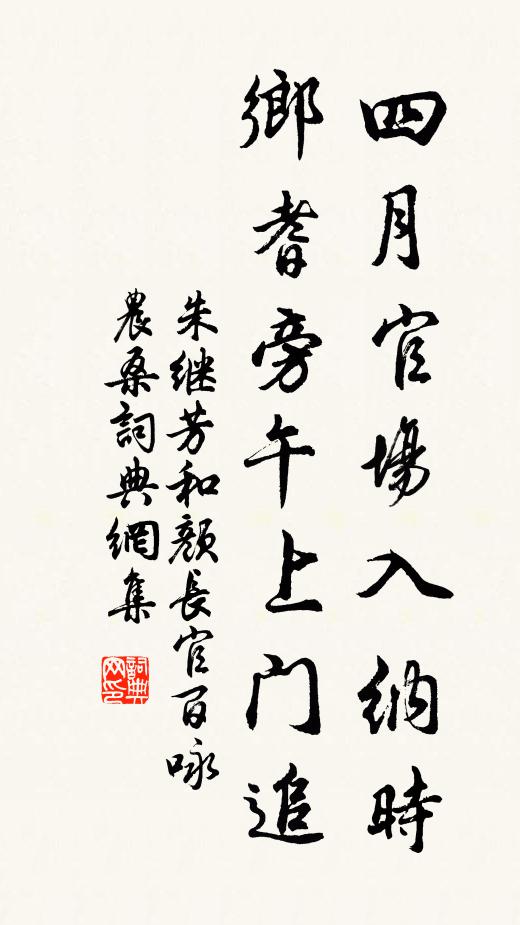 四月官場入納時
鄉耆旁午上门追
朱継芳和顏長官百咏
農桑詞典網集
詞典网印